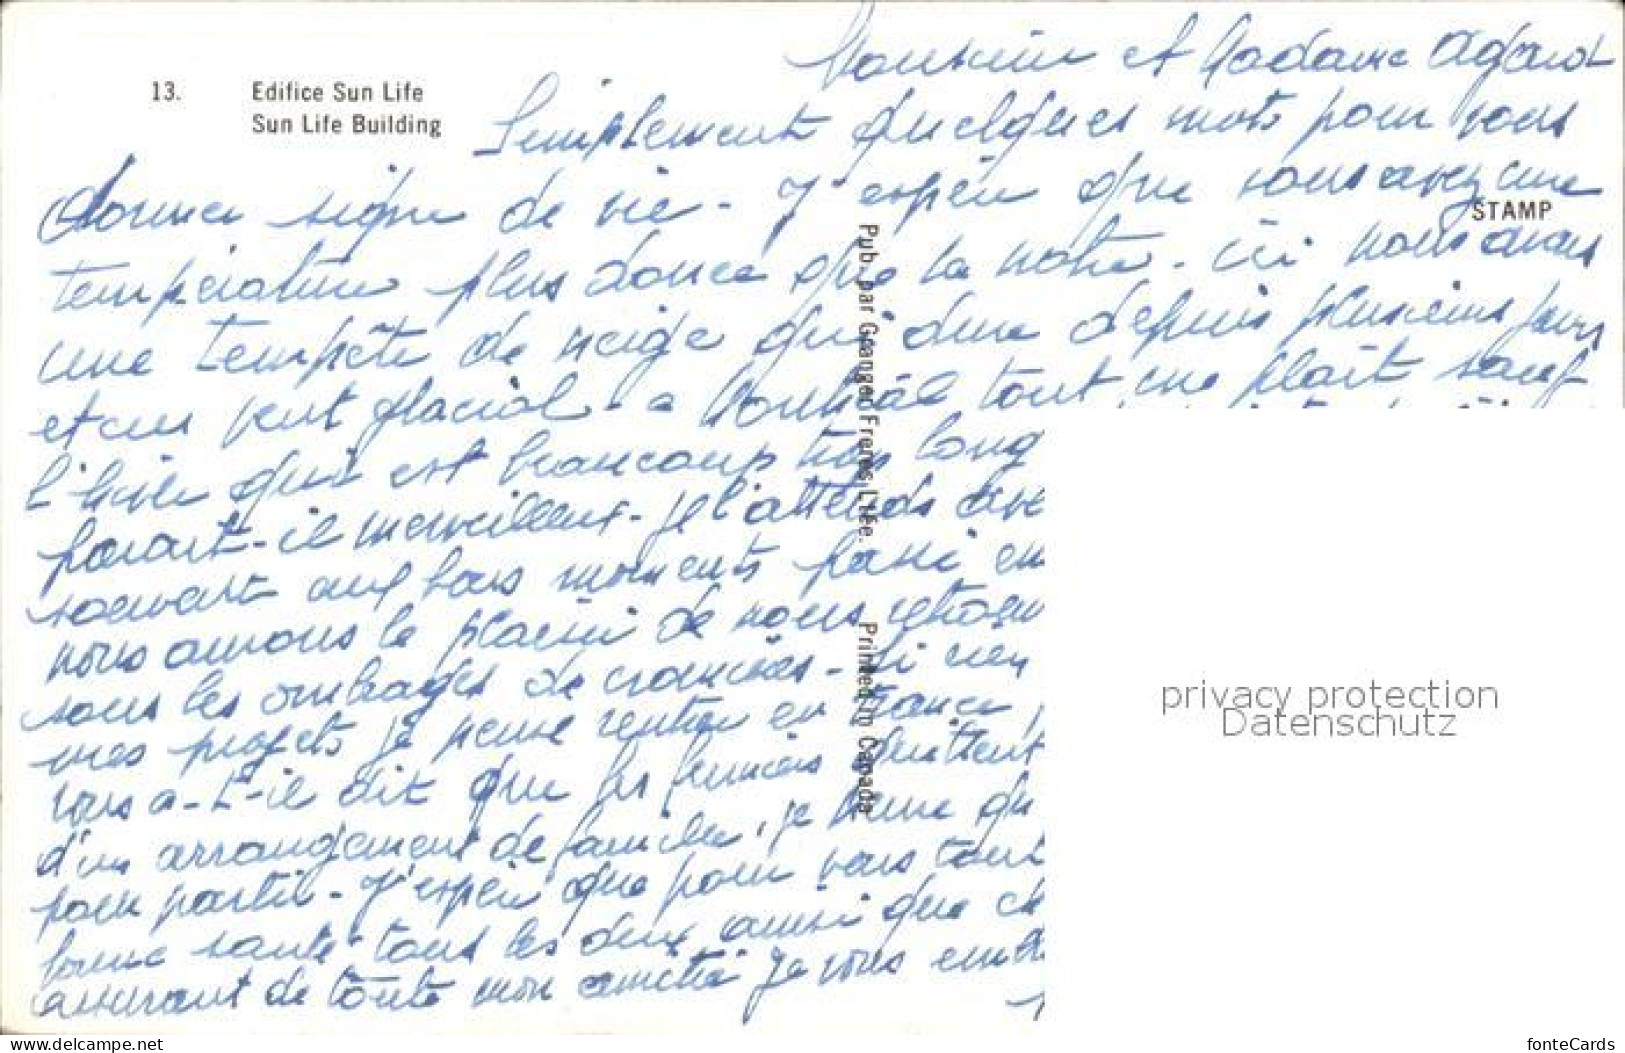 Monsieur et Madame Agard
13. Edifice Sun Life
Sun Life Building
Simplement quelques mots pour vous
donner signe de vie - J'espère que vous avez une
STAMP
température plus douce que la notre - ici nous avons
une tempête de neige qui dure depuis plusieurs jours
et un vent glacial - a Montréal tout me plait sauf
l'hiver qui est beaucoup trop long
parait-il merveilleux - je l'attends ave
souvent aux bons moments passé en
nous aurons le plaisir de nous retrouv
sous les ombrages de - Si rien
mes projets je pense rentrer en France,
vous a-t-il dit que les
d'un arrangement de famille, je
pour partir - J'espère que pour vous tout
bonne santé tous les deux ainsi que ch
assurant de toute mon amitié je vous emb
Pub. par Granger Freres Ltée.
Printed in Canada
privacy protection
Datenschutz
www.delcampe.net
fonteCards